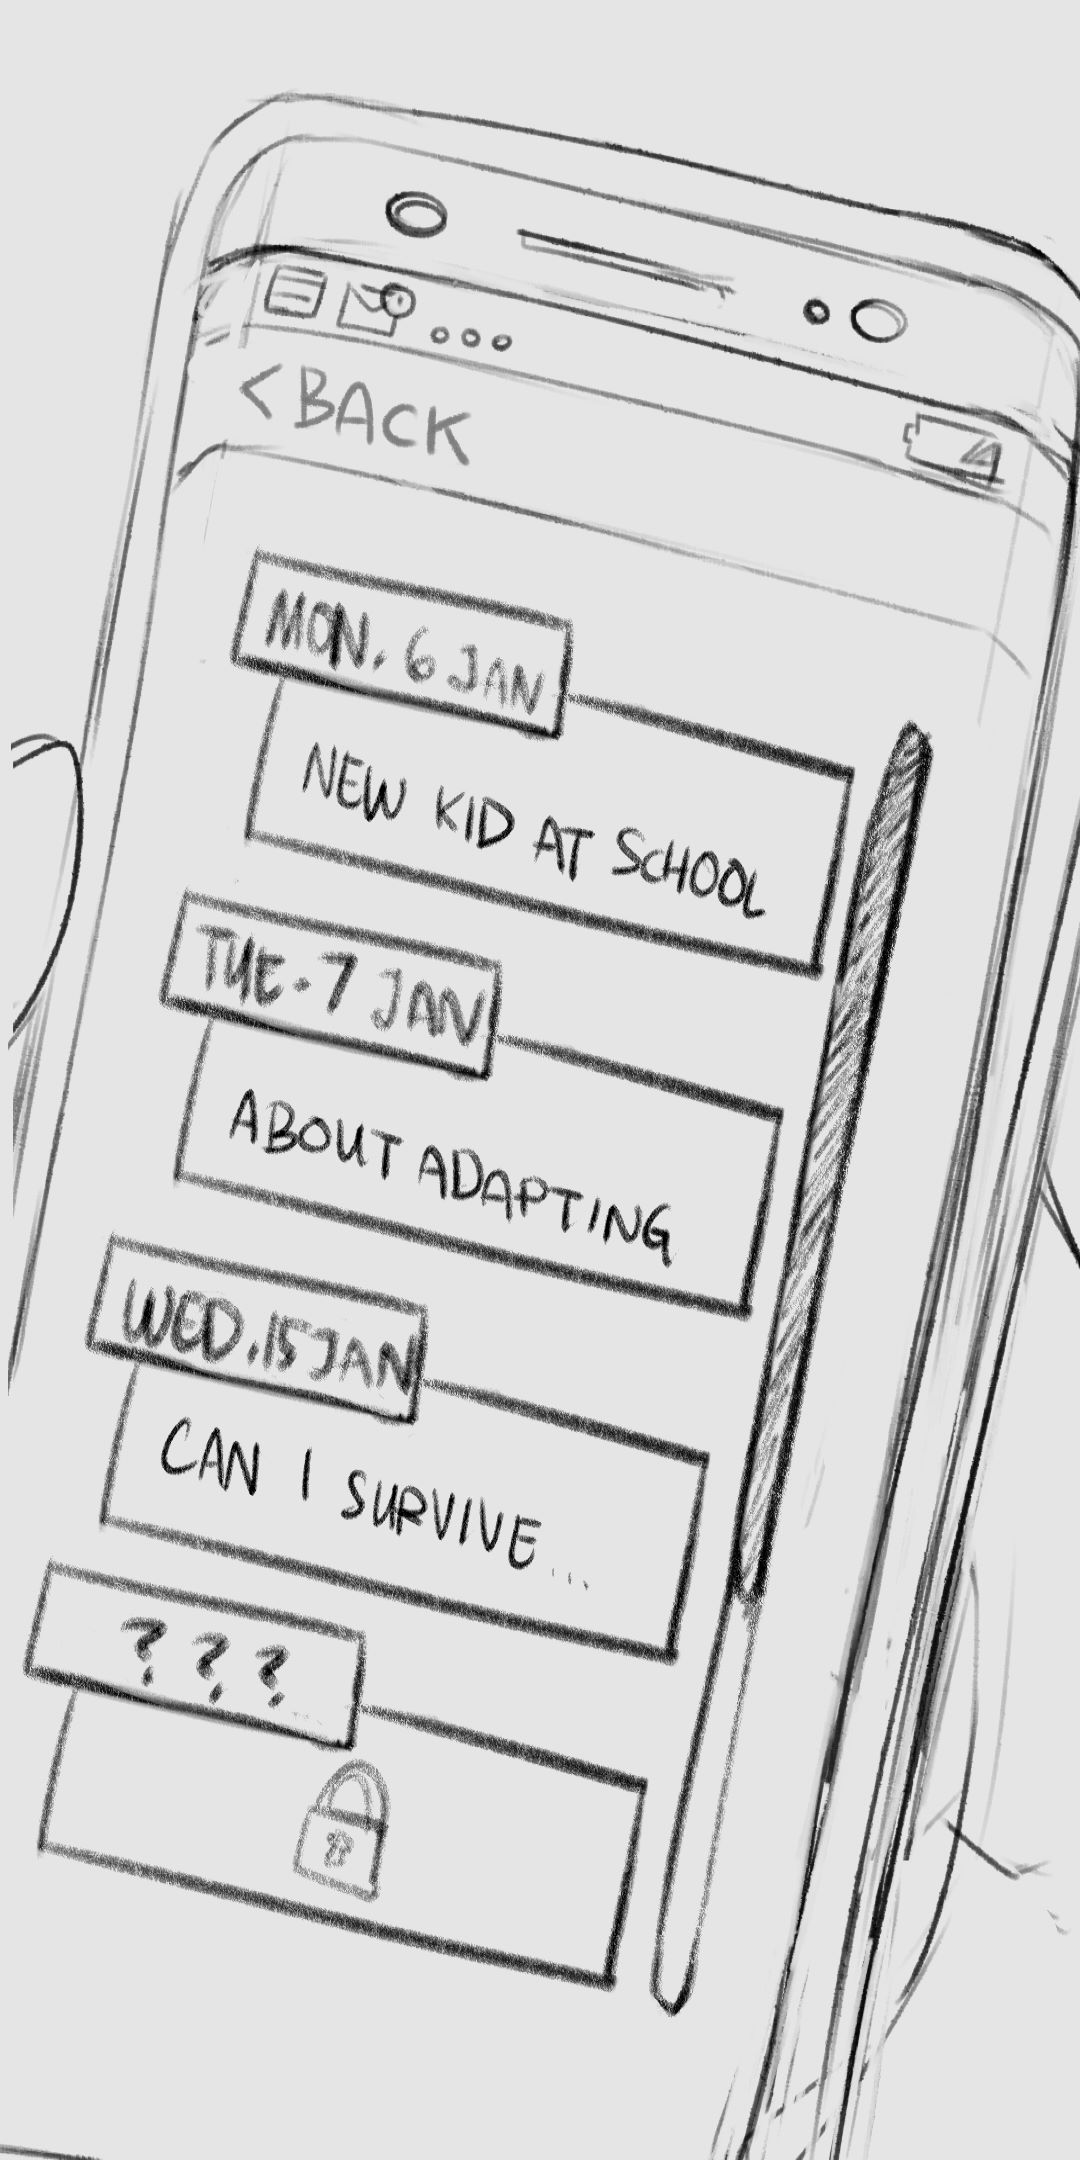 < BACK
MON. 6 JAN
NEW KID AT SCHOOL
TUE. 7 JAN
ABOUT ADAPTING
WED. 15 JAN
CAN I SURVIVE...
???